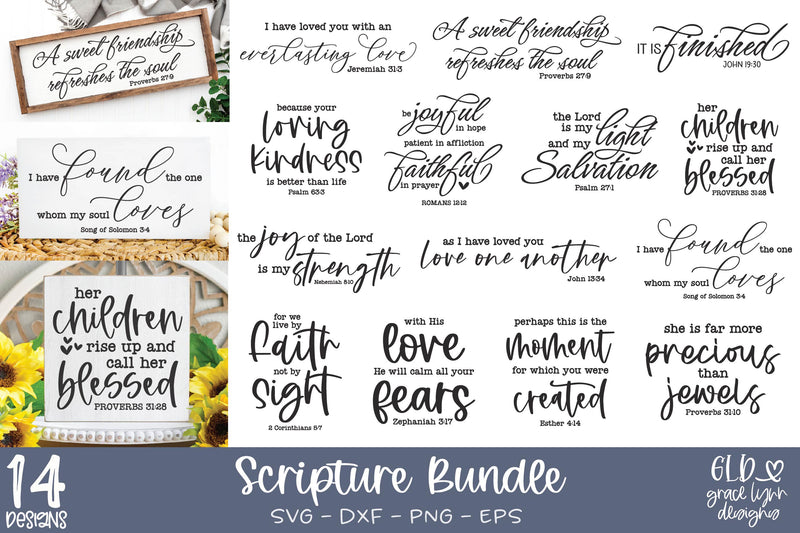 A sweet friendship
refreshes the soul
Proverbs 27:9
I have found the one
whom my soul loves
Song of Solomon 3:4
her
children
rise up and
call her
blessed
PROVERBS 31:28
I have loved you with an
everlasting love
Jeremiah 31:3
A sweet friendship
refreshes the soul
Proverbs 27:9
IT IS finished
JOHN 19:30
because your
loving
kindness
is better than life
Psalm 63:3
be joyful in hope
patient in affliction
faithful
in prayer
ROMANS 12:12
the Lord
is my light
and my
Salvation
Psalm 27:1
her
children
rise up and
call her
blessed
PROVERBS 31:28
the joy of the Lord
is my strength
Nehemiah 8:10
as I have loved you
love one another
John 13:34
I have found the one
whom my soul loves
Song of Solomon 3:4
for we
live by
faith
not by
sight
2 Corinthians 5:7
with His
love
He will calm all your
fears
Zephaniah 3:17
perhaps this is the
moment
for which you were
created
Esther 4:14
she is far more
precious
than
jewels
Proverbs 31:10
14
DESIGNS
Scripture Bundle
SVG - DXF - PNG - EPS
GLD
grace lynn
designs